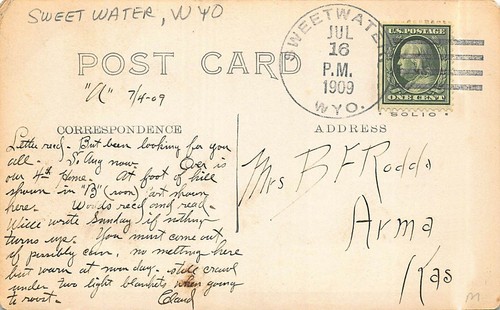 SWEET WATER, WYO
POST CARD
"A" 7/4-09
SWEETWATER
JUL
16
P.M.
1909
WYO.
U.S. POSTAGE
ONE CENT
SOLIO
CORRESPONDENCE
ADDRESS
Letter recd. But been looking for you
all. Any now. Over is
our 4th Home. At foot of hill
shown in "B" (won) art shown
here. Words recd and read.
Will write Sunday if nothing
turns up. You must come out
if possibly can, no melting here
but warm at noon day. still crawl
under two light blankets when going
to roost. Claud
Mrs B F Rodda
Arma
Kas